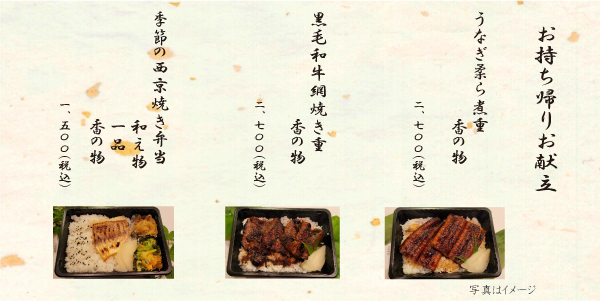 お持ち帰りお献立
うなぎ柔ら煮重
香の物
二、七〇〇(税込)
黒毛和牛網焼き重
香の物
二、七〇〇(税込)
季節の西京焼き弁当
和え物
一品
香の物
一、五〇〇(税込)
写真はイメージ